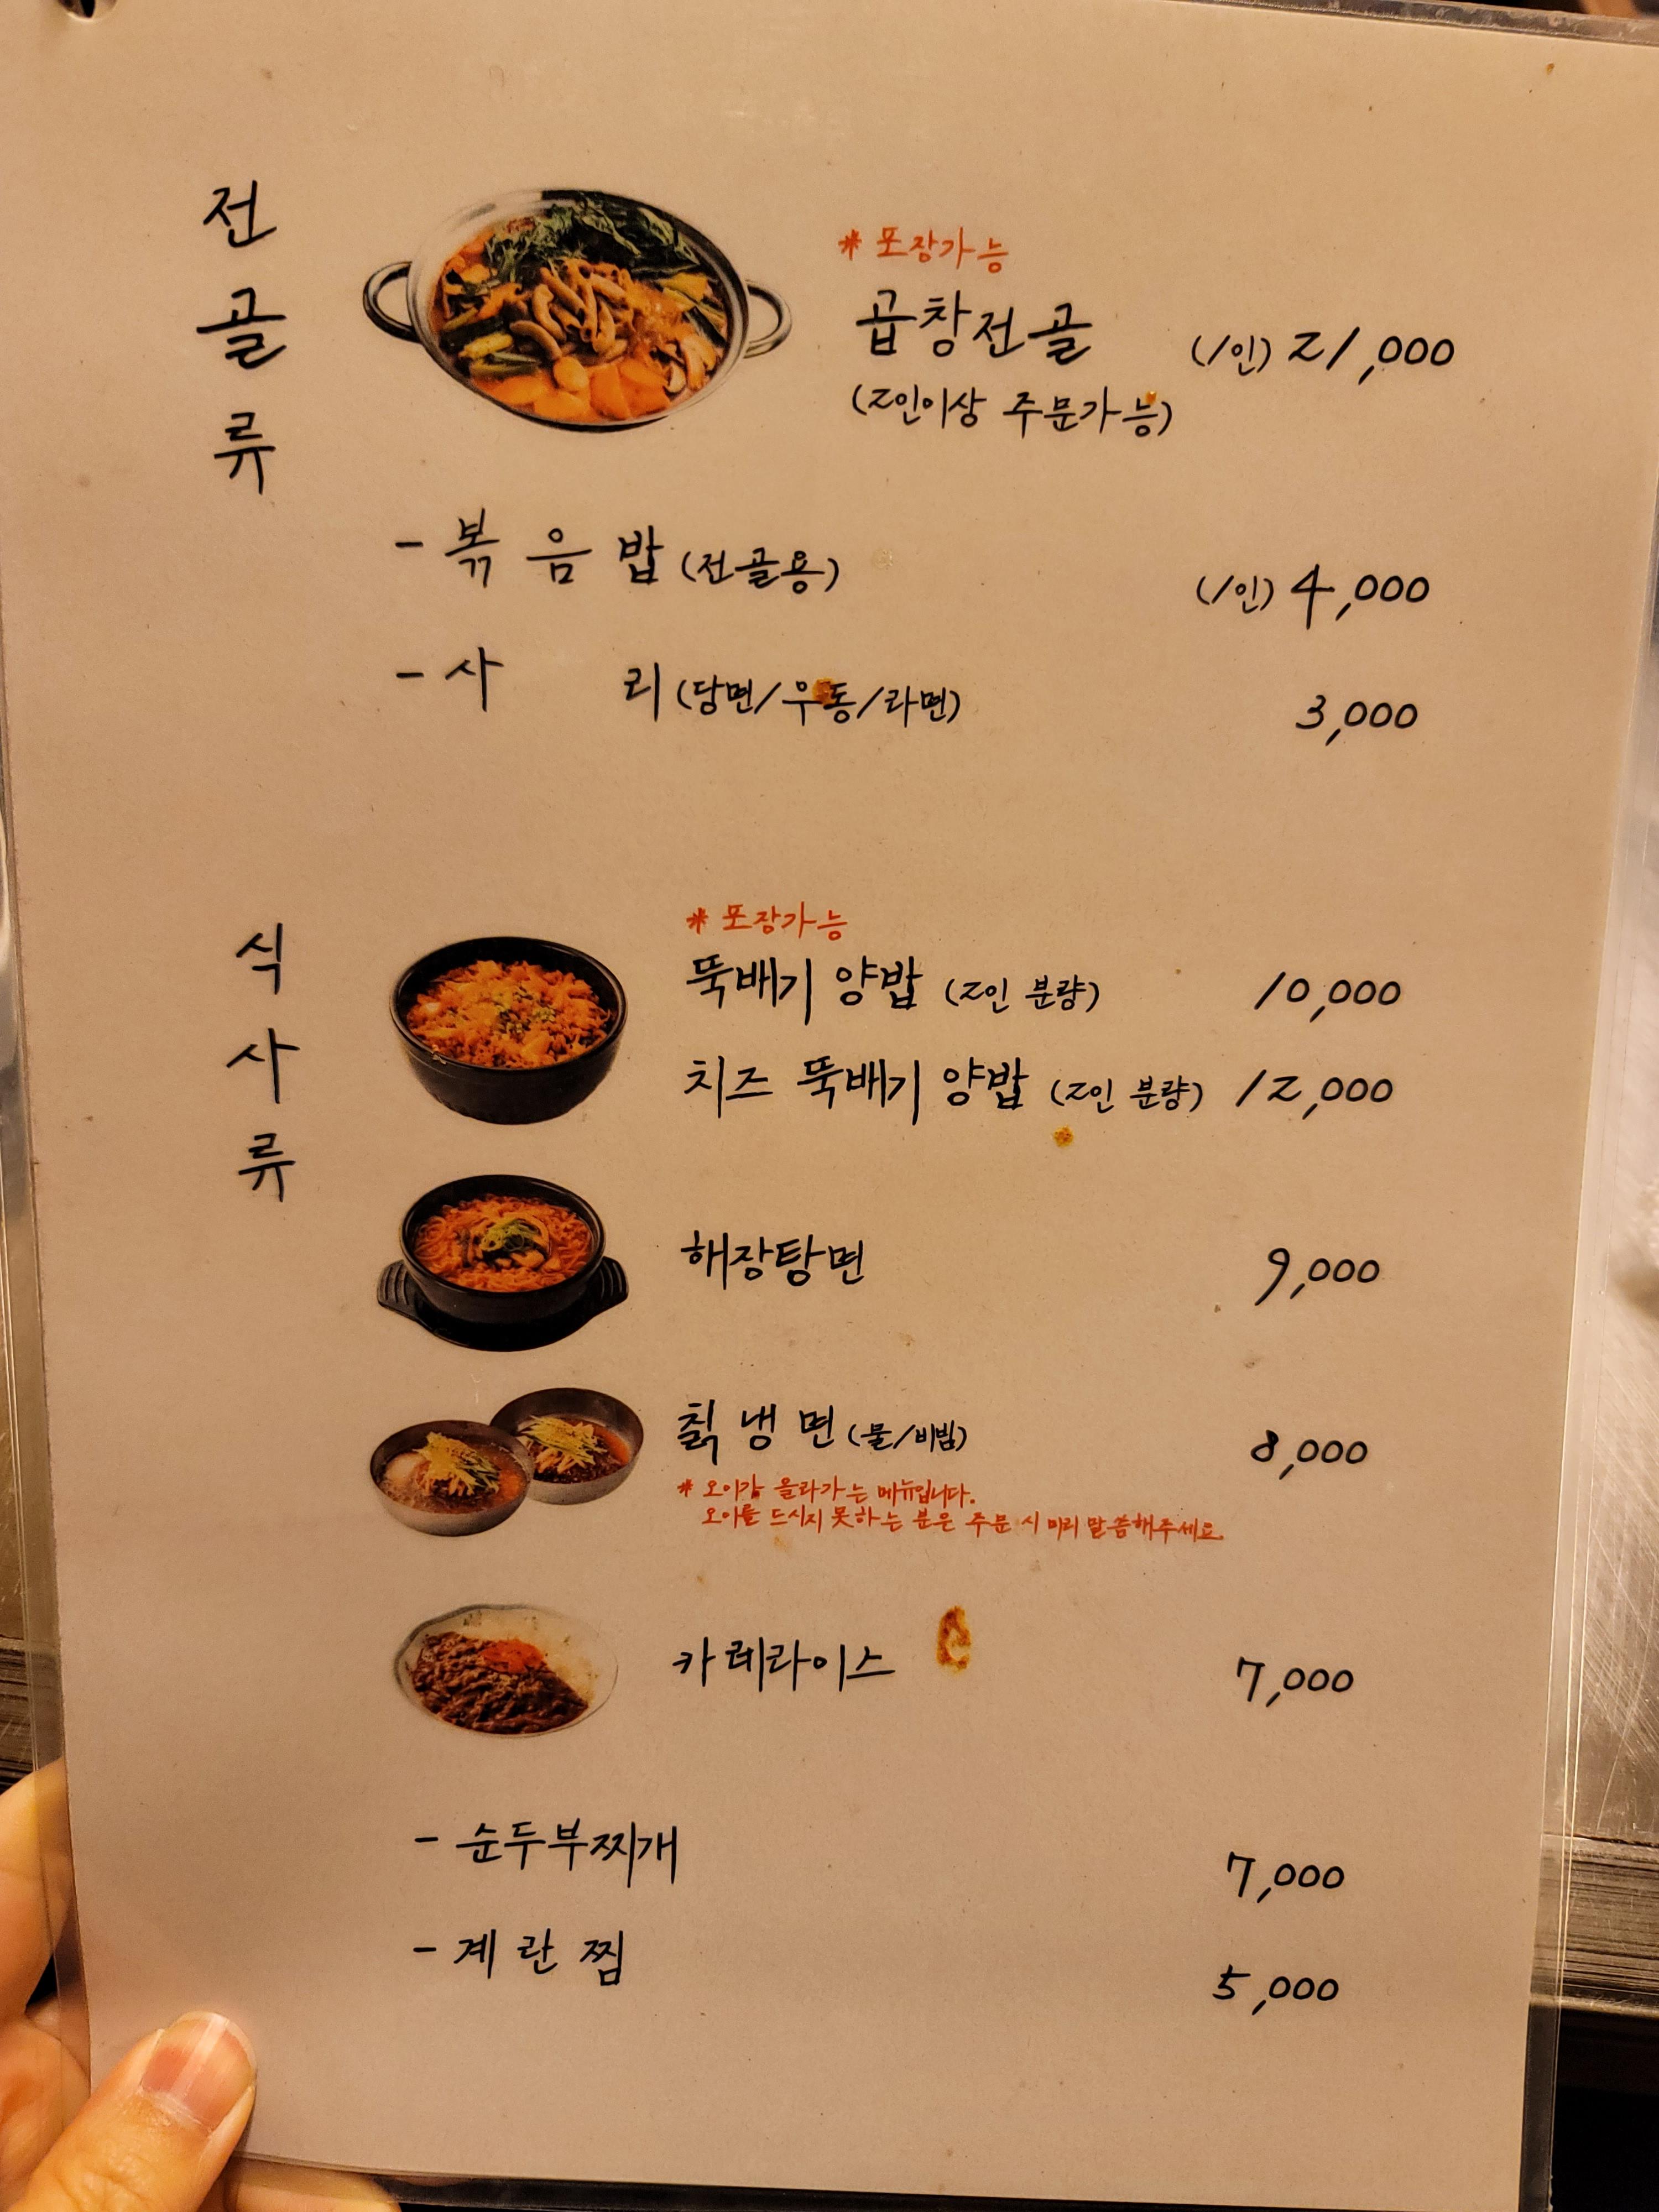 전골류
* 포장가능
곱창전골 (1인) 21,000
(2인이상 주문가능)
- 볶음밥 (전골용) (1인) 4,000
- 사 리 (당면/우동/라면) 3,000
식사류
* 포장가능
뚝배기 양밥 (2인 분량) 10,000
치즈 뚝배기 양밥 (2인 분량) 12,000
해장탕면 9,000
칡냉면 (물/비빔) 8,000
* 오이가 올라가는 메뉴입니다.
오이를 드시지 못하는 분은 주문 시 미리 말씀해주세요.
카레라이스 7,000
- 순두부찌개 7,000
- 계란찜 5,000